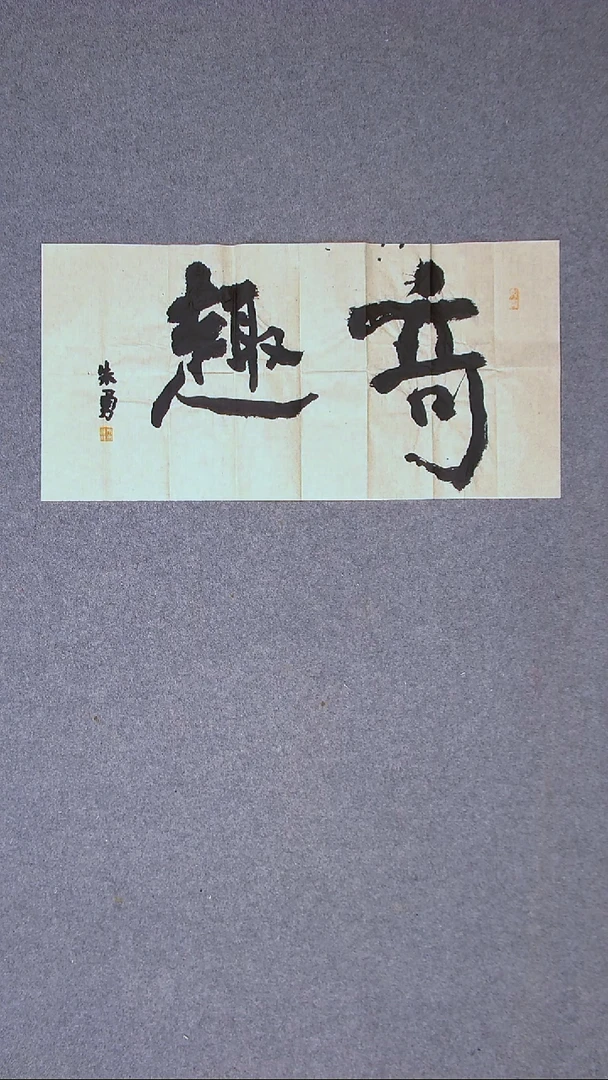 奇趣
朱勇